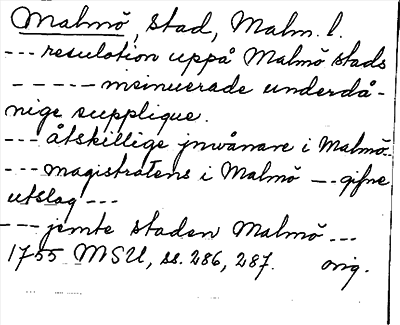 Malmö, stad, Malm. l.
--- resulotion uppå Malmö stads
----- insinuerade underdå-
nige supplique.
--- åtskillige jnwånare i Malmö--
--- magistratens i Malmö -- gifne
utslag ---
--- jemte staden Malmö ---
1755 MSU, ss. 286, 287. orig.